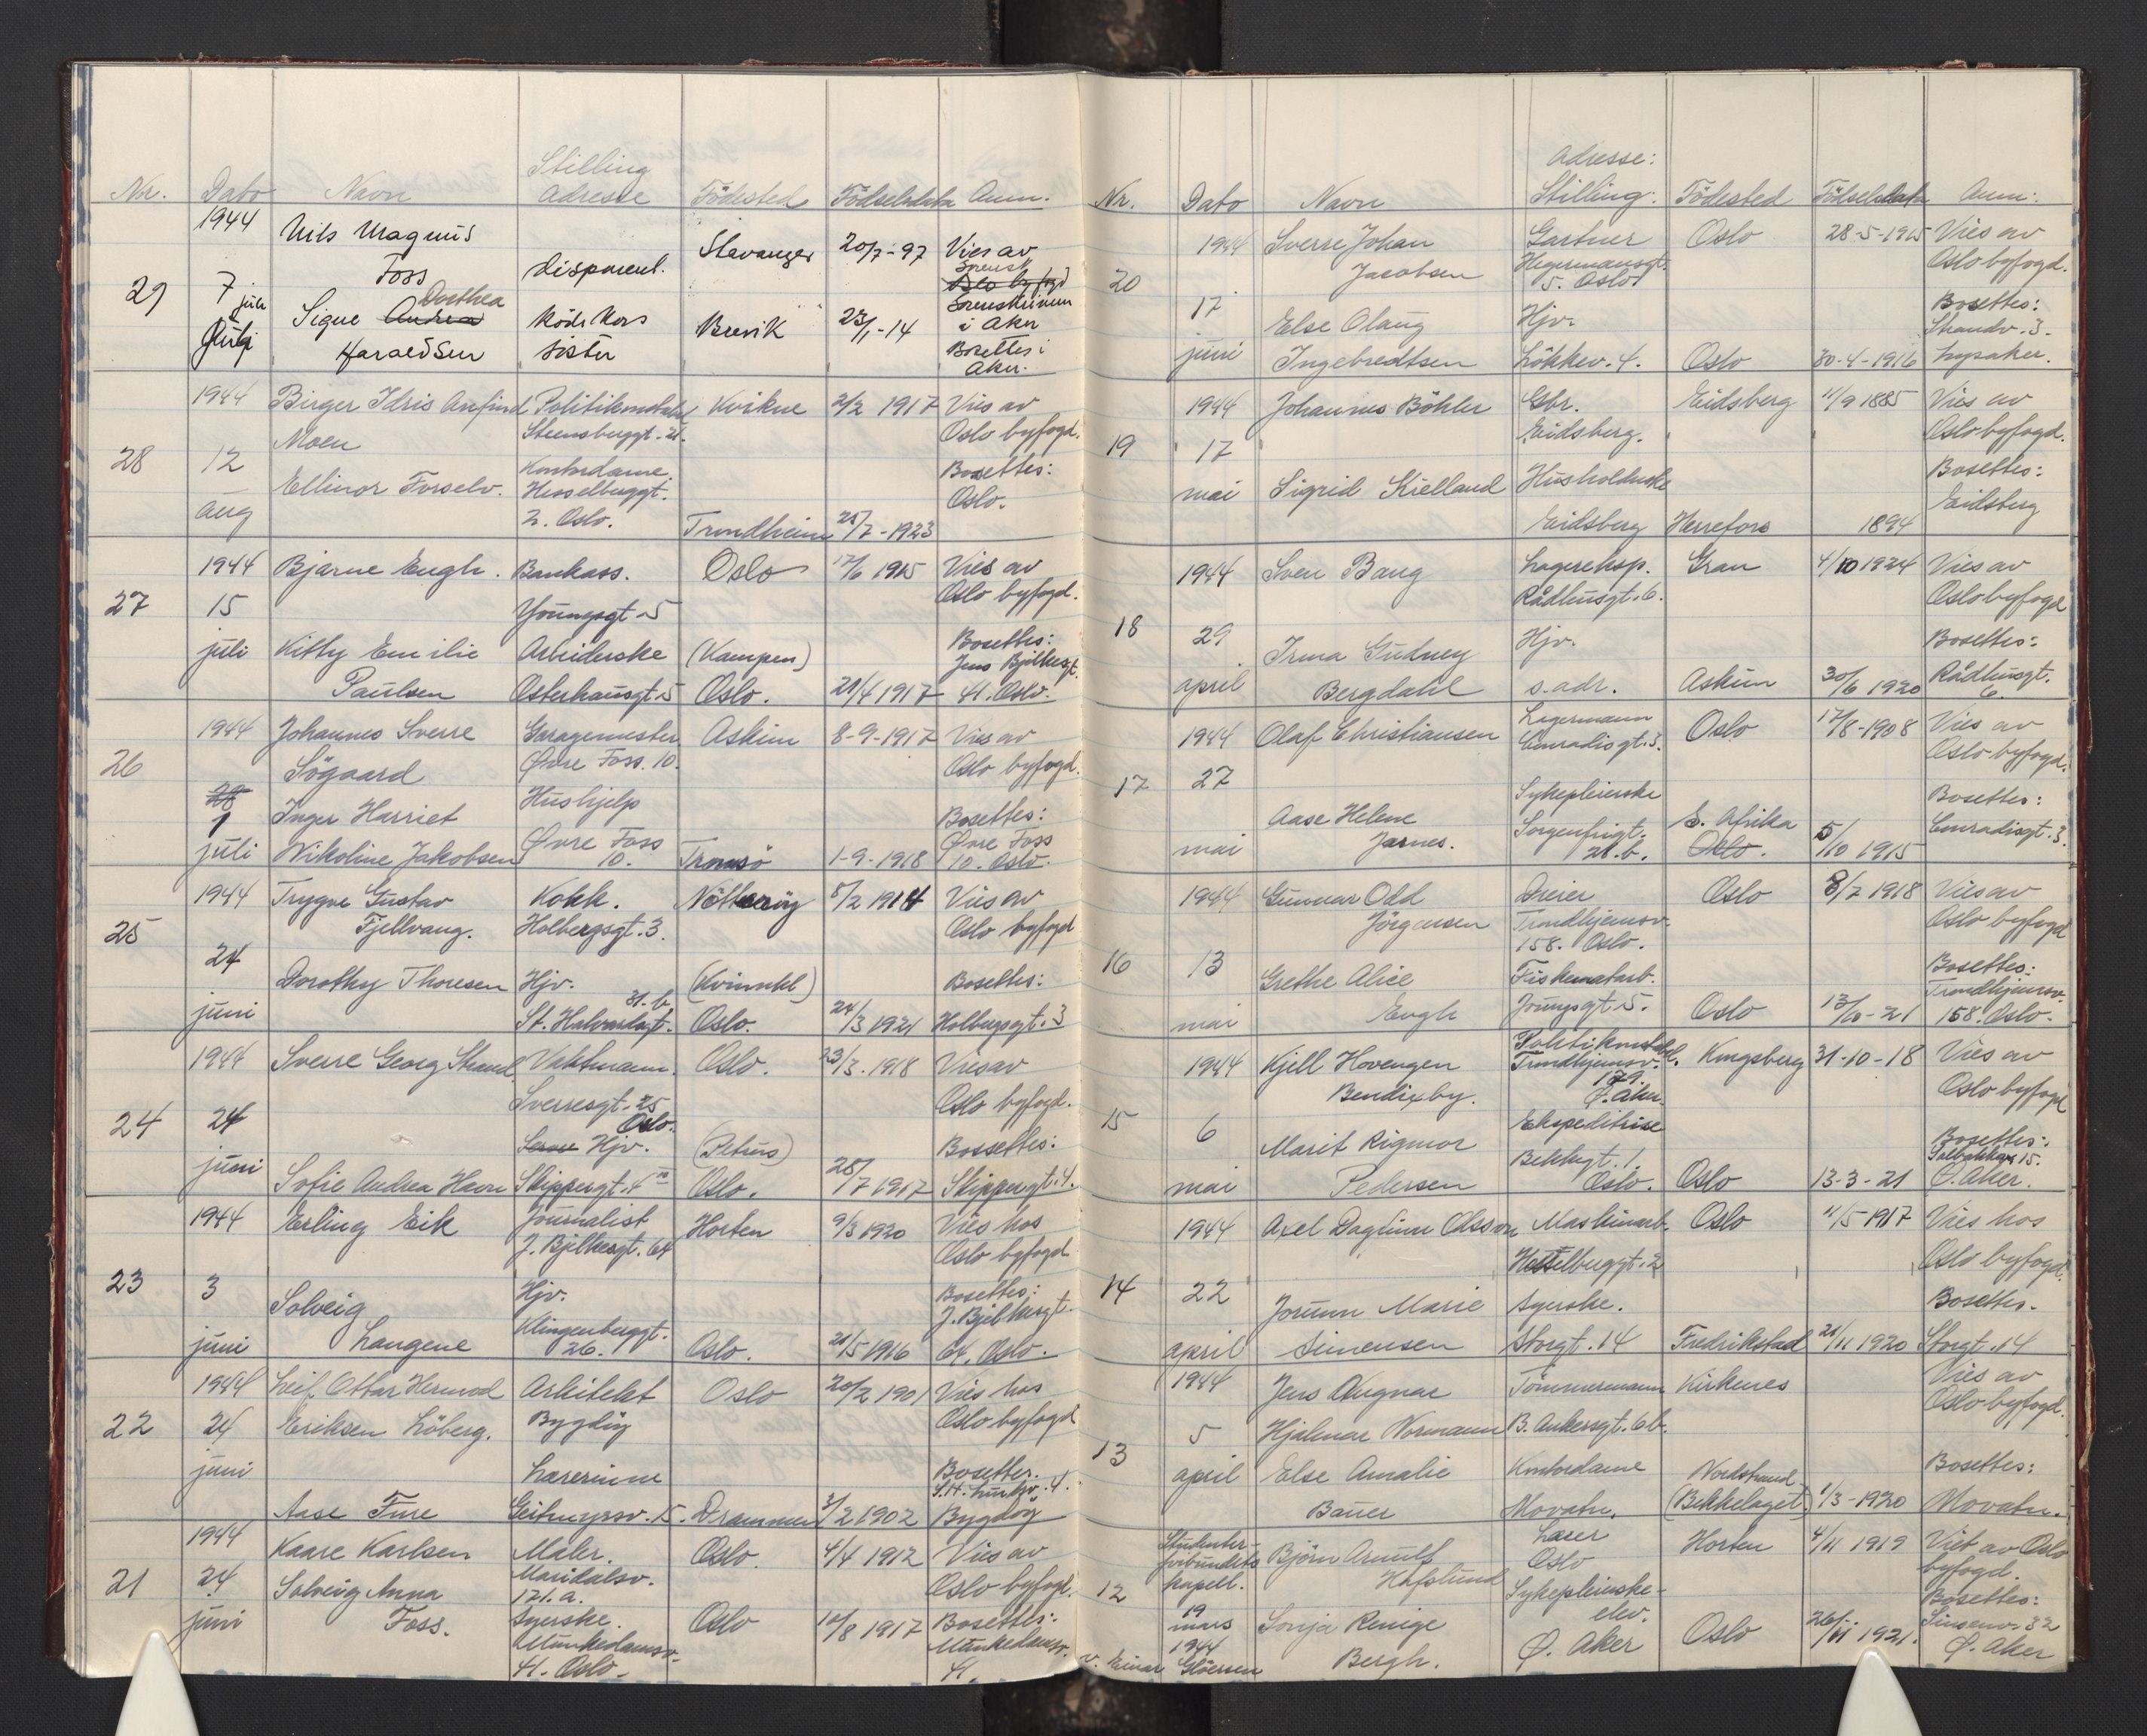 Nr. Dato Navn Stilling Adresse Födested Födselsdato Anm.
1944 Nils Magnus Foss Disponent. Stavanger 20/7-97 Vies av
29 7 juli Signe Dorthea Andrea Haraldsen Röde Kors Söster Brevik 23/1-14 Sorenskriveren i Aker
Bosettes i Aker.
1944 Birger Idris Anfind Politikonstabel Kvikne 2/2 1917 Vies av
Moen Steensberggt. 21. Oslo byfogd.
28 12 Kontordame Bosettes:
aug Ellinor Forselv. Hesselberggt. Oslo.
2. Oslo. Trondheim 25/7-1923
1944 Bjarne Engh. Bankass. Oslo 17/6 1915 Vies av
27 15 Youngsgt. 5 Oslo byfogd.
juli Kitty Emilie Arbeiderske (Kampen) Bosettes: Jens Bjelkesgt.
Paulsen Osterhausgt. 5 Oslo. 21/4 1917 41. Oslo.
1944 Johannes Sverre Garagemester Askim 8-9-1917 Vies av
26 Sögaard Övre Foss. 10. Oslo byfogd.
28 1 Inger Harriet Hushjelp Bosettes:
juli Nikoline Jakobsen Övre Foss 10. Tromsö 1-9-1918 Övre Foss 10. Oslo.
1944 Trygve Gustav Kokk. Nötteröy 8/2 1914 Vies av
25 Fjellvang. Holbergsgt. 3. Oslo byfogd
24 Dorothy Thoresen Hjv. 31. b Bosettes:
juni St. Halvardsgt. Oslo. 24/3 1921 Holbergsgt. 3
1944 Sverre Georg Strand Vaktmann. Oslo. 23/3. 1918 Vies av
24 24 Sverresgt. 25 Oslo. Oslo byfogd.
Hjv. (Petrus) Bossettes:
juni Sofie Andrea Havn Skippergt. 4 Oslo. 28/7 1917 Skippergt. 4.
1944 Erling Eik Journalist Horten 9/3 1920 Vies hos
J. Bjelkesgt. 64 Oslo byfogd
23 3 Solveig Hjv. Bosettes: J. Bjelkesgt.
juni Langene Klingenberggt. 26. Oslo. 21/5 1916 64. Oslo.
1944 Leif Ottar Hermod Arkitekt Oslo 20/2 1901 Vies hos
22 24 Eriksen Löberg. Bygdöy Oslo byfogd
juni Lærerinne Bosettes.
Aase Fure Geitmyrsv. 15. Drammen 3/2 1902 Bygdöy
1944 Kaare Karlsen Maler. Oslo. 4/4 1912 Vies av
21 24 Solveig Anna Maridalsv. 121. a. Oslo byfogd.
juni Foss. Syerske. Oslo 10/8 1917 Bosettes:
Munkedamsv. 41. Oslo. Munkedamsv. 41.
Nr. Dato Navn Adresse: Stilling: Födested Födselsdato Anm:
1944 Sverre Johan Gartner Oslo 28-5-1915 Vies av
20 Jacobsen Hegermansgt. 5. Oslo Oslo byfogd.
17 Else Olaug Hjv. Bosettes: Strandv. 3.
juni Ingebredtsen Lökkev. 4. Oslo 30-4-1916 Lysaker.
1944 Johannes Böhler Gbr. Eidsberg 11/9 1885 Vies av
19 17 Eidsberg. Oslo byfogd.
mai Sigrid Kielland Husholderske Bosettes:
Eidsberg Herrefors 1894 Eidsberg
1944 Sven Bang Lagereksp. Gran 4/10 1924 Vies av
Rådhusgt. 6. Oslo byfogd
18 29 Irma Gudney Hjv. Bosettes:
april Bergdahl s. adr. Askim 30/6 1920 Rådhusgt. 6.
1944 Olaf Christiansen Lagermann Oslo 17/8-1908 Vies av
Conradisgt. 3. Oslo byfogd.
17 27 Aase Helene Sykepleierske S. Afrika Bosettes:
mai Jarnes. Sorgenfrigt. 21. b. Oslo. 5/10 1915 Conradisgt. 3.
1944 Gunnar Odd Dreier Oslo 8/7 1918 Vies av
Jörgensen Trondhjemsv. 158. Oslo. Oslo byfogd
16 13 Grethe Alice Fiskematarb. Bosettes: Trondhjemsv.
mai Engh Youngsgt. 5. Oslo 13/10-21 158. Oslo.
1944 Kjell Hovengen Politikonstabel. Kongsberg 31-10-18 Vies av
Bendixby. Trondhjemsv. 179. Ö. Aker. Oslo byfogd
15 6 Marit Rigmor Ekspeditrise Bosettes:
mai Pedersen Bekkegt. 1. Oslo. Oslo 13-3-21 Solbakken 15. Ö. Aker.
1944 Axel Dagfinn Olsson Maskinarb. Oslo 11/5 1917 Vies hos
Hesselberggt. 2 Oslo byfogd.
14 22 Jorunn Marie Syerske. Bosettes.
april Simensen Storgt. 14 Fredrikstad 21/11 1920 Storgt. 14
1944 Jens Tömmermann Kirkenes Vies av
5 Hjalmar Normann B. Ankersgt. 6b. Oslo byfogd.
13 april Else Amalie Kontordame Nordstrand Bosettes:
Bauer Movatn. (Bekkelaget) 1/3-1920 Movatn.
Studenterforbundets kapell. Björn Arnulf Lærer Horten 4/11 1919 Viet av Oslo
12 Hafslund Oslo byfogd.
19 mars Sonja Renige Sykepleierske- elev. Oslo 26/11 1921. Bosettes: Sinsenv. 32
1944 Bergh. Ö. Aker Ö. Aker
v. Einar